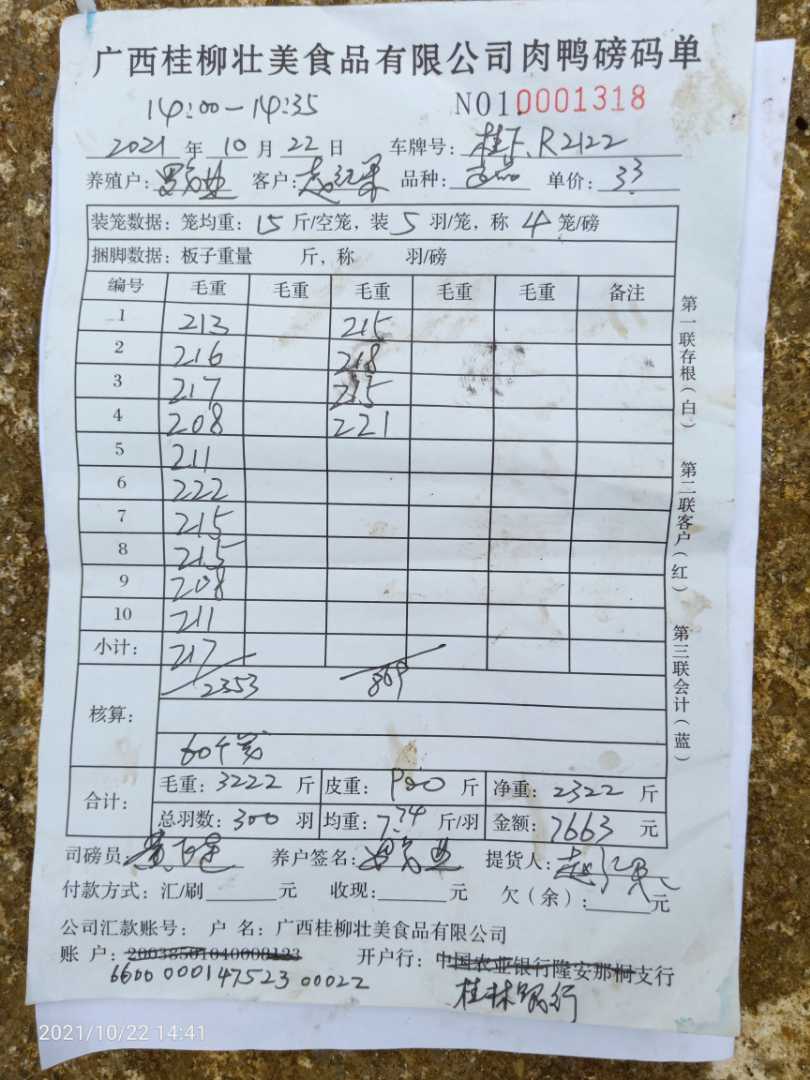 广西桂柳壮美食品有限公司肉鸭磅码单
14:00-14:35 NO10001318
2021 年 10 月 22 日 车牌号: 桂F.R2122
养殖户: 业 客户: 赵 品种: 单价: 33
装笼数据: 笼均重: 15 斤/空笼, 装 5 羽/笼, 称 4 笼/磅
捆脚数据: 板子重量 斤, 称 羽/磅
编号 毛重 毛重 毛重 毛重 毛重 备注
1 213 215
2 216 218
3 217 215
4 208 221
5 211
6 222
7 215
8 215
9 208
10 211
小计: 217
2353 869
核算:
60个笼
合计: 毛重: 3222 斤 皮重: 900 斤 净重: 2322 斤
总羽数: 300 羽 均重: 7.74 斤/羽 金额: 7663 元
司磅员: 黄 养户签名: 业 提货人: 赵
付款方式: 汇/刷 元 收现: 元 欠(余): 元
公司汇款账号: 户 名: 广西桂柳壮美食品有限公司
账 户: 20038501040008123 开户行: 中国农业银行隆安那桐支行
6600 0001 47523 00022 桂林银行
第一联存根(白) 第二联客户(红) 第三联会计(蓝)
2021/10/22 14:41